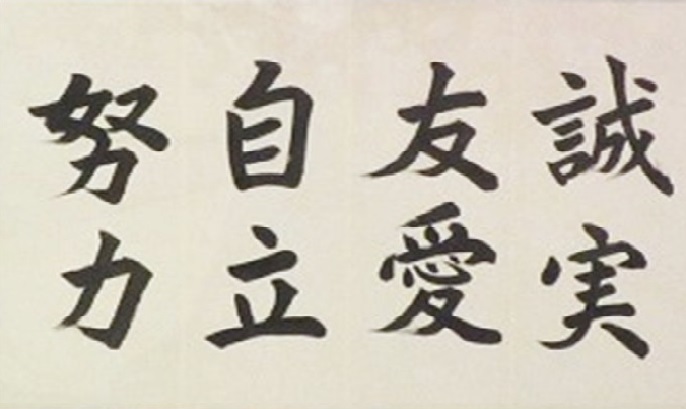 誠実
友愛
自立
努力